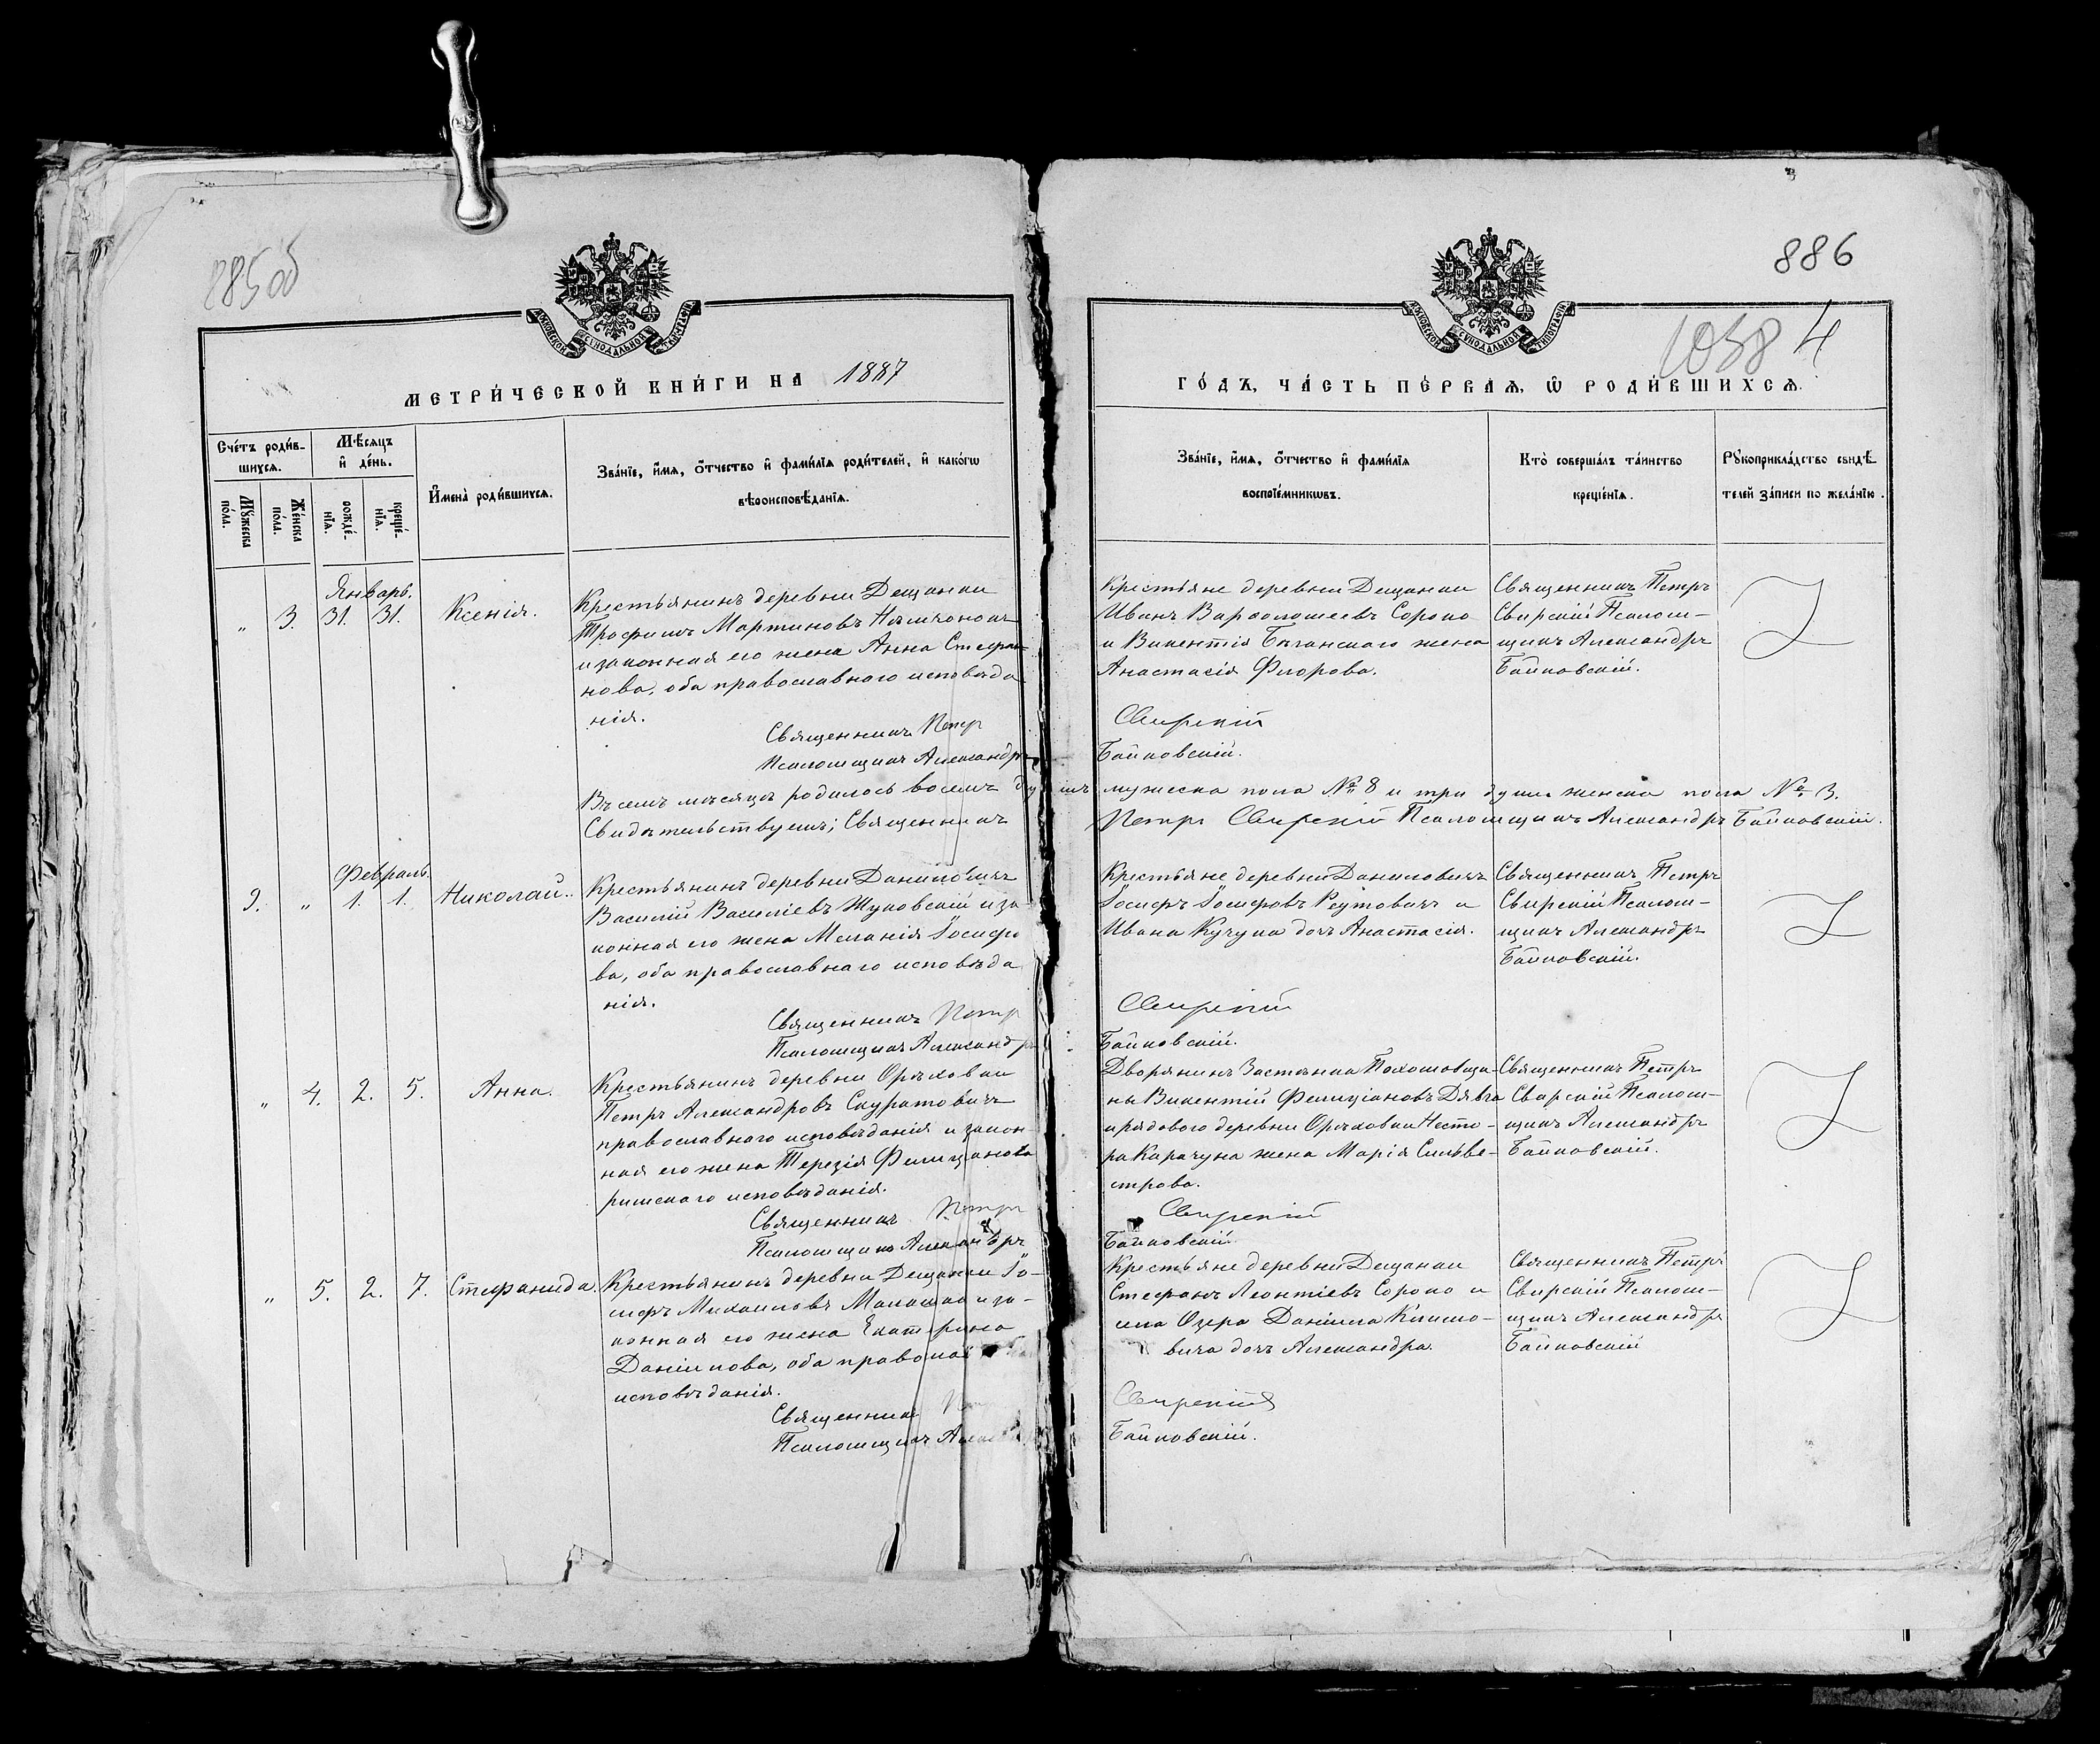 885об
886
1058 4
МОСКОВСКОЙ СѴНОДАЛЬНОЙ ТИПОГРАФІИ
МОСКОВСКОЙ СѴНОДАЛЬНОЙ ТИПОГРАФІИ
МЕТРИ́ЧЕСКОЙ КНИ́ГИ НА 1887
ГО́ДЪ, ЧА́СТЬ ПЕ́РВАѦ, Ѽ РОДИ́ВШИХСѦ.
Сче́тъ роди́в-
шихсѧ.
Мѣ́сѧцъ
и҆ де́нь.
Мꙋ́жеска
по́ла.
Же́нска
по́ла.
рожде́-
нїѧ.
креще́-
нїѧ.
И҆мена̀ роди́вшихсѧ.
Зва́нїе, и҆́мѧ, ѻ҆́тчество и҆ фами́лїѧ роди́телей, и҆ како́гѡ
вѣроисповѣ́данїѧ.
Зва́нїе, и҆́мѧ, ѻ҆́тчество и҆ фами́лїѧ
воспрїе́мникѡвъ.
Кто̀ соверша́лъ та́инство
креще́нїѧ.
Рꙋкоприкла́дство свидѣ́-
телей за́писи по жела́нїю.
Январь.
„ 3. 31. 31. Ксенія.
Крестьянинъ деревни Дещанки
Трофимъ Мартиновъ
и законная его жена Анна Стефа-
нова, оба православного исповѣда
нія.
Священникъ Петр
Псаломщикъ Александръ
Крестьяне деревни Дещанки
Иванъ Варфоломеевъ Сороко
и Викентія жена
Анастасія Флорова.
Свирскій
Байковскій.
Священникъ Петръ
Свирскій Псалом-
щикъ Александръ
Байковскій.
Въ семъ мѣсяцѣ родилось восемь душъ мужеска пола № 8 и три души женска пола № 3.
Свидѣтельствуемъ; Священникъ Петръ Свирскій Псаломщикъ Александръ Байковскій.
Февраль.
9. „ 1. 1. Николай.
Крестьянинъ деревни Даниловичъ
Василій Василіевъ Жуковскій и за
конная его жена Меланія Іосифо
ва, оба православнаго исповѣда
нія.
Священникъ Петр
Псаломщикъ Александръ
Крестьяне деревни Даниловичъ
Іосифъ Іосифовъ Реутовичъ и
Ивана Кучука дочь Анастасія.
Свирскій
Байковскій.
Священникъ Петръ
Свирскій Псалом-
щикъ Александръ
Байковскій.
„ 4. 2. 5. Анна.
Крестьянинъ деревни Орѣховки
Петръ Александровъ Скуратовичъ
православнаго исповѣданія и закон-
ная его жена Терезія Фелиціанова
римскаго исповѣданія.
Священникъ Петръ
Псаломщикъ Александръ
Дворянинъ Застѣнка
ны Викентій Фелиціановъ
и рядового деревни Орѣховки Несто-
ра Карачуна жена Марія Сильве-
строва.
Свирскій
Байковскій.
Священникъ Петръ
Свирскій Псалом-
щикъ Александръ
Байковскій.
„ 5. 2. 7. Стефанида.
Крестьянинъ деревни Дещанки Іо-
сифъ Михаиловъ и за-
конная его жена Екатерина
Даніилова, оба православ
исповѣданія.
Священникъ Петр
Псаломщикъ Александръ
Крестьяне деревни Дещанки
Стефанъ Леонтіевъ Сороко и
села Озера Даніила Климо-
вича дочь Александра.
Свирскій
Байковскій.
Священникъ Петръ
Свирскій Псалом-
щикъ Александръ
Байковскій